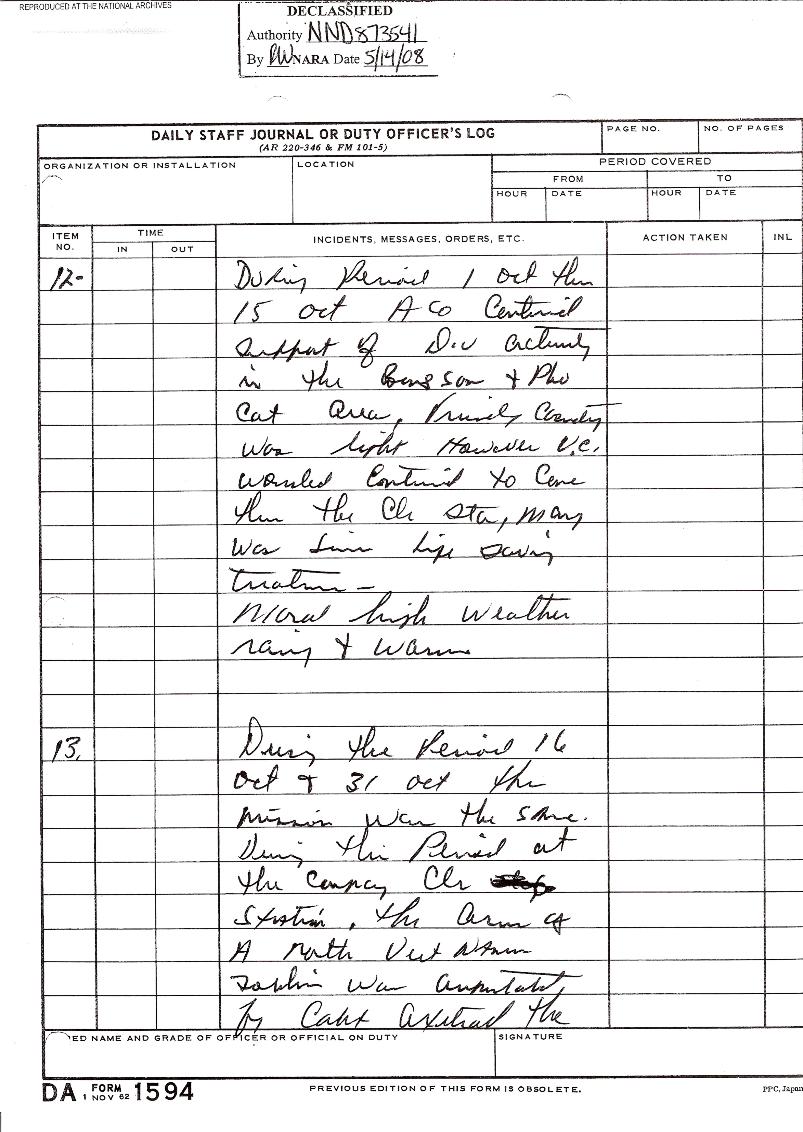 REPRODUCED AT THE NATIONAL ARCHIVES
DECLASSIFIED
Authority NND873541
By NARA Date 5/14/08
DAILY STAFF JOURNAL OR DUTY OFFICER'S LOG
(AR 220-346 & FM 101-5)
PAGE NO.
NO. OF PAGES
ORGANIZATION OR INSTALLATION
LOCATION
PERIOD COVERED
FROM
TO
HOUR
DATE
HOUR
DATE
ITEM NO.
TIME
IN
OUT
INCIDENTS, MESSAGES, ORDERS, ETC.
ACTION TAKEN
INL
12-
During Period 1 Oct thru
15 oct A Co
support of Div
in the Bong Son + Phu
Cat area,
was light However V.C.
wounded to Come
thru the Clr Sta, many
was life saving
Moral high Weather
+ Warm
13.
During the Period 16
Oct & 31 oct the
mission was the same.
During this Period at
the Company Clr
Station, the arm of
A North
was
by Capt the
ED NAME AND GRADE OF OFFICER OR OFFICIAL ON DUTY
SIGNATURE
DA FORM 1 NOV 62 1594
PREVIOUS EDITION OF THIS FORM IS OBSOLETE.
PPC, Japan